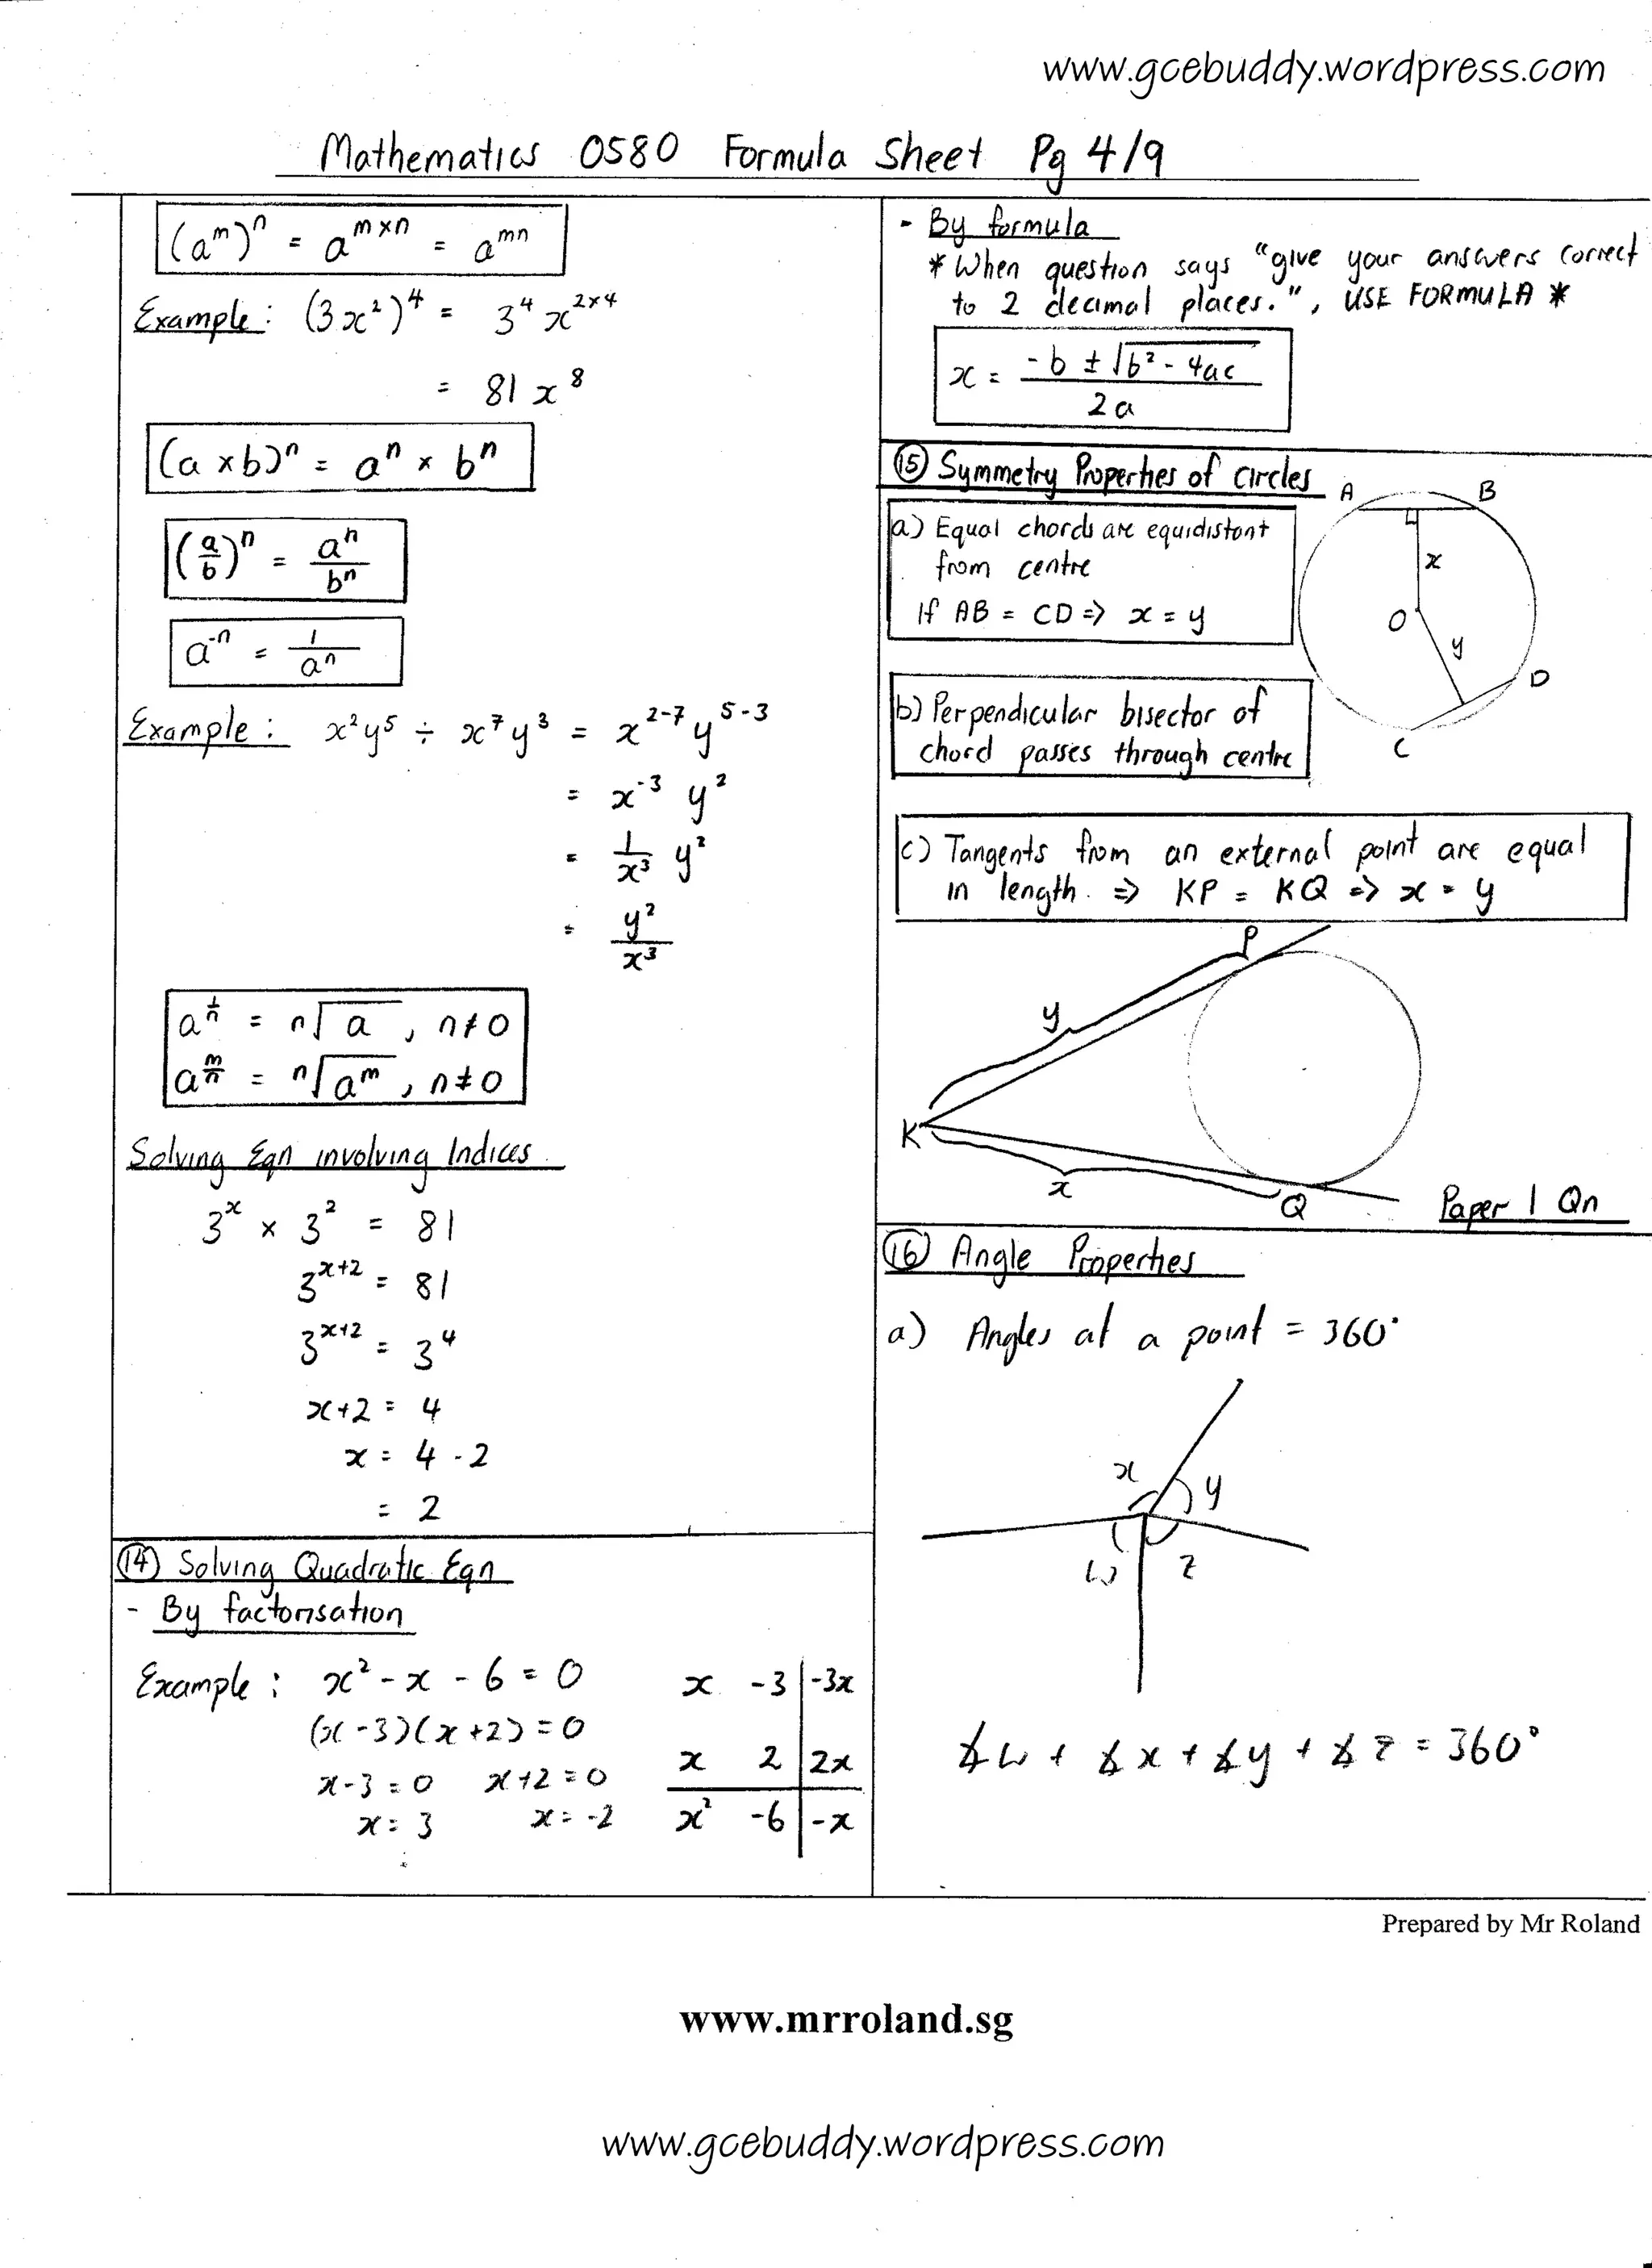 www.gcebuddy.wordpress.com
Mathematics 0580 Formula Sheet Pg 4/9
(a^m)^n = a^(m×n) = a^(mn)
Example: (3x²)⁴ = 3⁴ x^(2×4)
= 81 x⁸
(a × b)^n = a^n × b^n
(a/b)^n = a^n/b^n
a^(-n) = 1/a^n
Example: x²y⁵ ÷ x⁷y³ = x^(2-7) y^(5-3)
= x^(-3) y²
= 1/x³ y²
= y²/x³
a^(1/n) = n√a , n≠0
a^(m/n) = n√a^m , n≠0
Solving Eqn involving Indices
3^x × 3² = 81
3^(x+2) = 81
3^(x+2) = 3⁴
x+2 = 4
x = 4 - 2
= 2
⑭ Solving Quadratic Eqn
- By factorisation
Example: x² - x - 6 = 0
(x-3)(x+2) = 0
x-3 = 0 x+2 = 0
x = 3 x = -2
x -3 | -3x
x 2 | 2x
x² -6 | -x
- By formula
* When question says "give your answers correct
to 2 decimal places.", USE FORMULA *
x = (-b ± √(b² - 4ac))/2a
⑮ Symmetry Properties of circles
a) Equal chords are equidistant
from centre
If AB = CD => x = y
A B
x
O
y
D
C
b) Perpendicular bisector of
chord passes through centre
c) Tangents from an external point are equal
in length. => KP = KQ => x = y
P
y
K
x
Q
Paper 1 Qn
⑯ Angle Properties
a) Angles at a point = 360°
x y
w z
∡w + ∡x + ∡y + ∡z = 360°
Prepared by Mr Roland
www.mrroland.sg
www.gcebuddy.wordpress.com